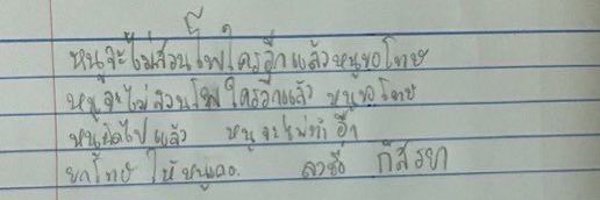 หนูจะไม่สวนโพใครอีกแล้วหนูขอโทษ
หนูจะไม่สวนโพใครอีกแล้ว หนูขอโทษ
หนูผิดไปแล้ว หนูจะไม่ทำอีก
ยกโทษให้หนู
ลงชื่อ กิสรยา